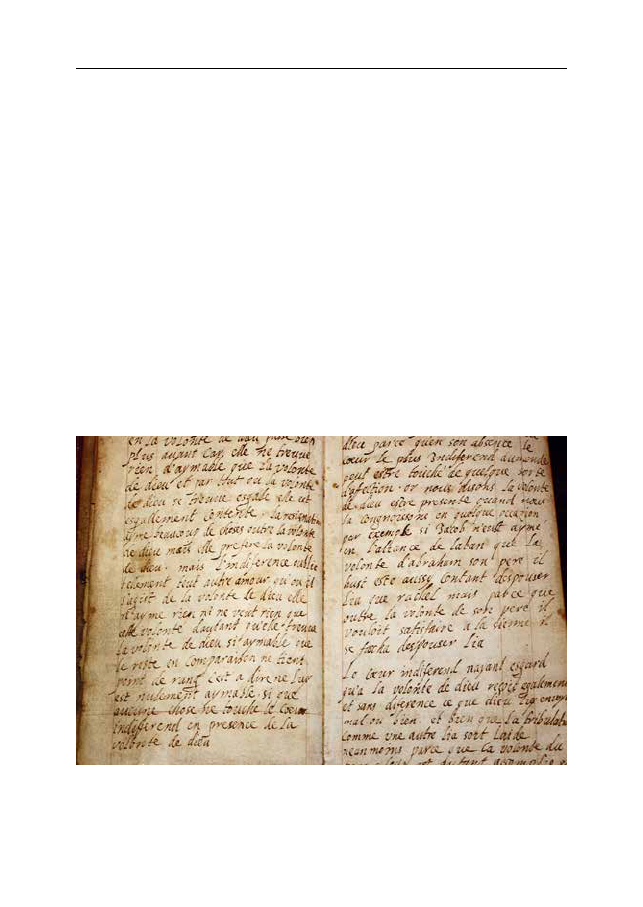 en la volonte de dieu mais bien
plus auant Car elle ne treuue
rien d'aymable que la volonte
de dieu et par tout ou la volonte
de dieu se treuue esgale elle est
esgallement contente la resignation
ayme beaucoup de choses outre la volonte
de dieu mais elle prefere la volonte
de dieu mais l'indiference
tout autre amour
s'agit de la volonte de dieu elle
n'ayme rien ni ne veut rien que
elle volonte dautant qu'elle treuue
la volonte de dieu si aymable que
le reste en Comparaison ne tient
point de rang c'est a dire ne luy
est nulement aymable si que
aucune chose ne touche le Cœur
indiferend en presence de la
volonte de dieu
dieu parce quen son absence le
cœur le plus Indiferend du monde
peut estre touché de quelque sorte
d'afection or nous disons la volonte
de dieu estre presente quand nous
la en quelque ocasion
par exemple si Jacob n'eust ayme
en l'aliance de laban que la
volonte d'abraham son pere il
eust esté aussy Contant despouser
Lia que rachel mais parce que
outre la volonte de son pere il
vouloit satisfaire a la sienne il
se facha despouser Lia
Le cœur indiferend nayant esgard
qu'a la volonte de dieu reçoi egalement
et sans diference ce que dieu luy
mal ou bien et bien que la tribulat
Comme une autre lia soit laide
neanmoins parce que la volonte du